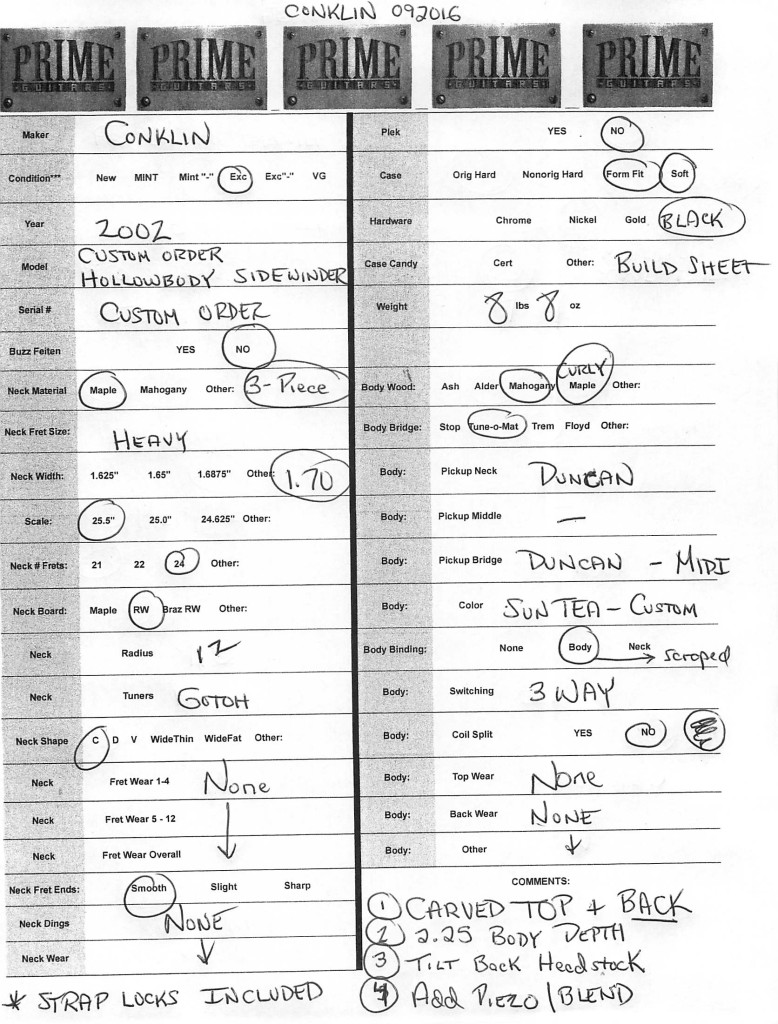 CONKLIN 092016
PRIME GUITARS PRIME GUITARS PRIME GUITARS PRIME GUITARS PRIME GUITARS
Maker CONKLIN
Condition*** New MINT Mint "-" Exc Exc"-" VG
Year 2002
Model CUSTOM ORDER
HOLLOWBODY SIDEWINDER
Serial # CUSTOM ORDER
Buzz Feiten YES NO
Neck Material Maple Mahogany Other: 3-Piece
Neck Fret Size: HEAVY
Neck Width: 1.625" 1.65" 1.6875" Other: 1.70
Scale: 25.5" 25.0" 24.625" Other:
Neck # Frets: 21 22 24 Other:
Neck Board: Maple RW Braz RW Other:
Neck Radius 12
Neck Tuners GOTOH
Neck Shape C D V WideThin WideFat Other:
Neck Fret Wear 1-4 None
Neck Fret Wear 5 - 12
Neck Fret Wear Overall
Neck Fret Ends: Smooth Slight Sharp
Neck Dings NONE
Neck Wear
* STRAP LOCKS INCLUDED
Plek YES NO
Case Orig Hard Nonorig Hard Form Fit Soft
Hardware Chrome Nickel Gold BLACK
Case Candy Cert Other: BUILD SHEET
Weight 8 lbs 8 oz
CURLY
Body Wood: Ash Alder Mahogany Maple Other:
Body Bridge: Stop Tune-o-Mat Trem Floyd Other:
Body: Pickup Neck DUNCAN
Body: Pickup Middle —
Body: Pickup Bridge DUNCAN - MIDI
Body: Color SUN TEA - CUSTOM
Body Binding: None Body Neck → Scraped
Body: Switching 3 WAY
Body: Coil Split YES NO
Body: Top Wear None
Body: Back Wear NONE
Body: Other
COMMENTS:
① CARVED TOP + BACK
② 2.25 BODY DEPTH
③ TILT BACK HEADSTOCK
④ Add PIEZO / BLEND